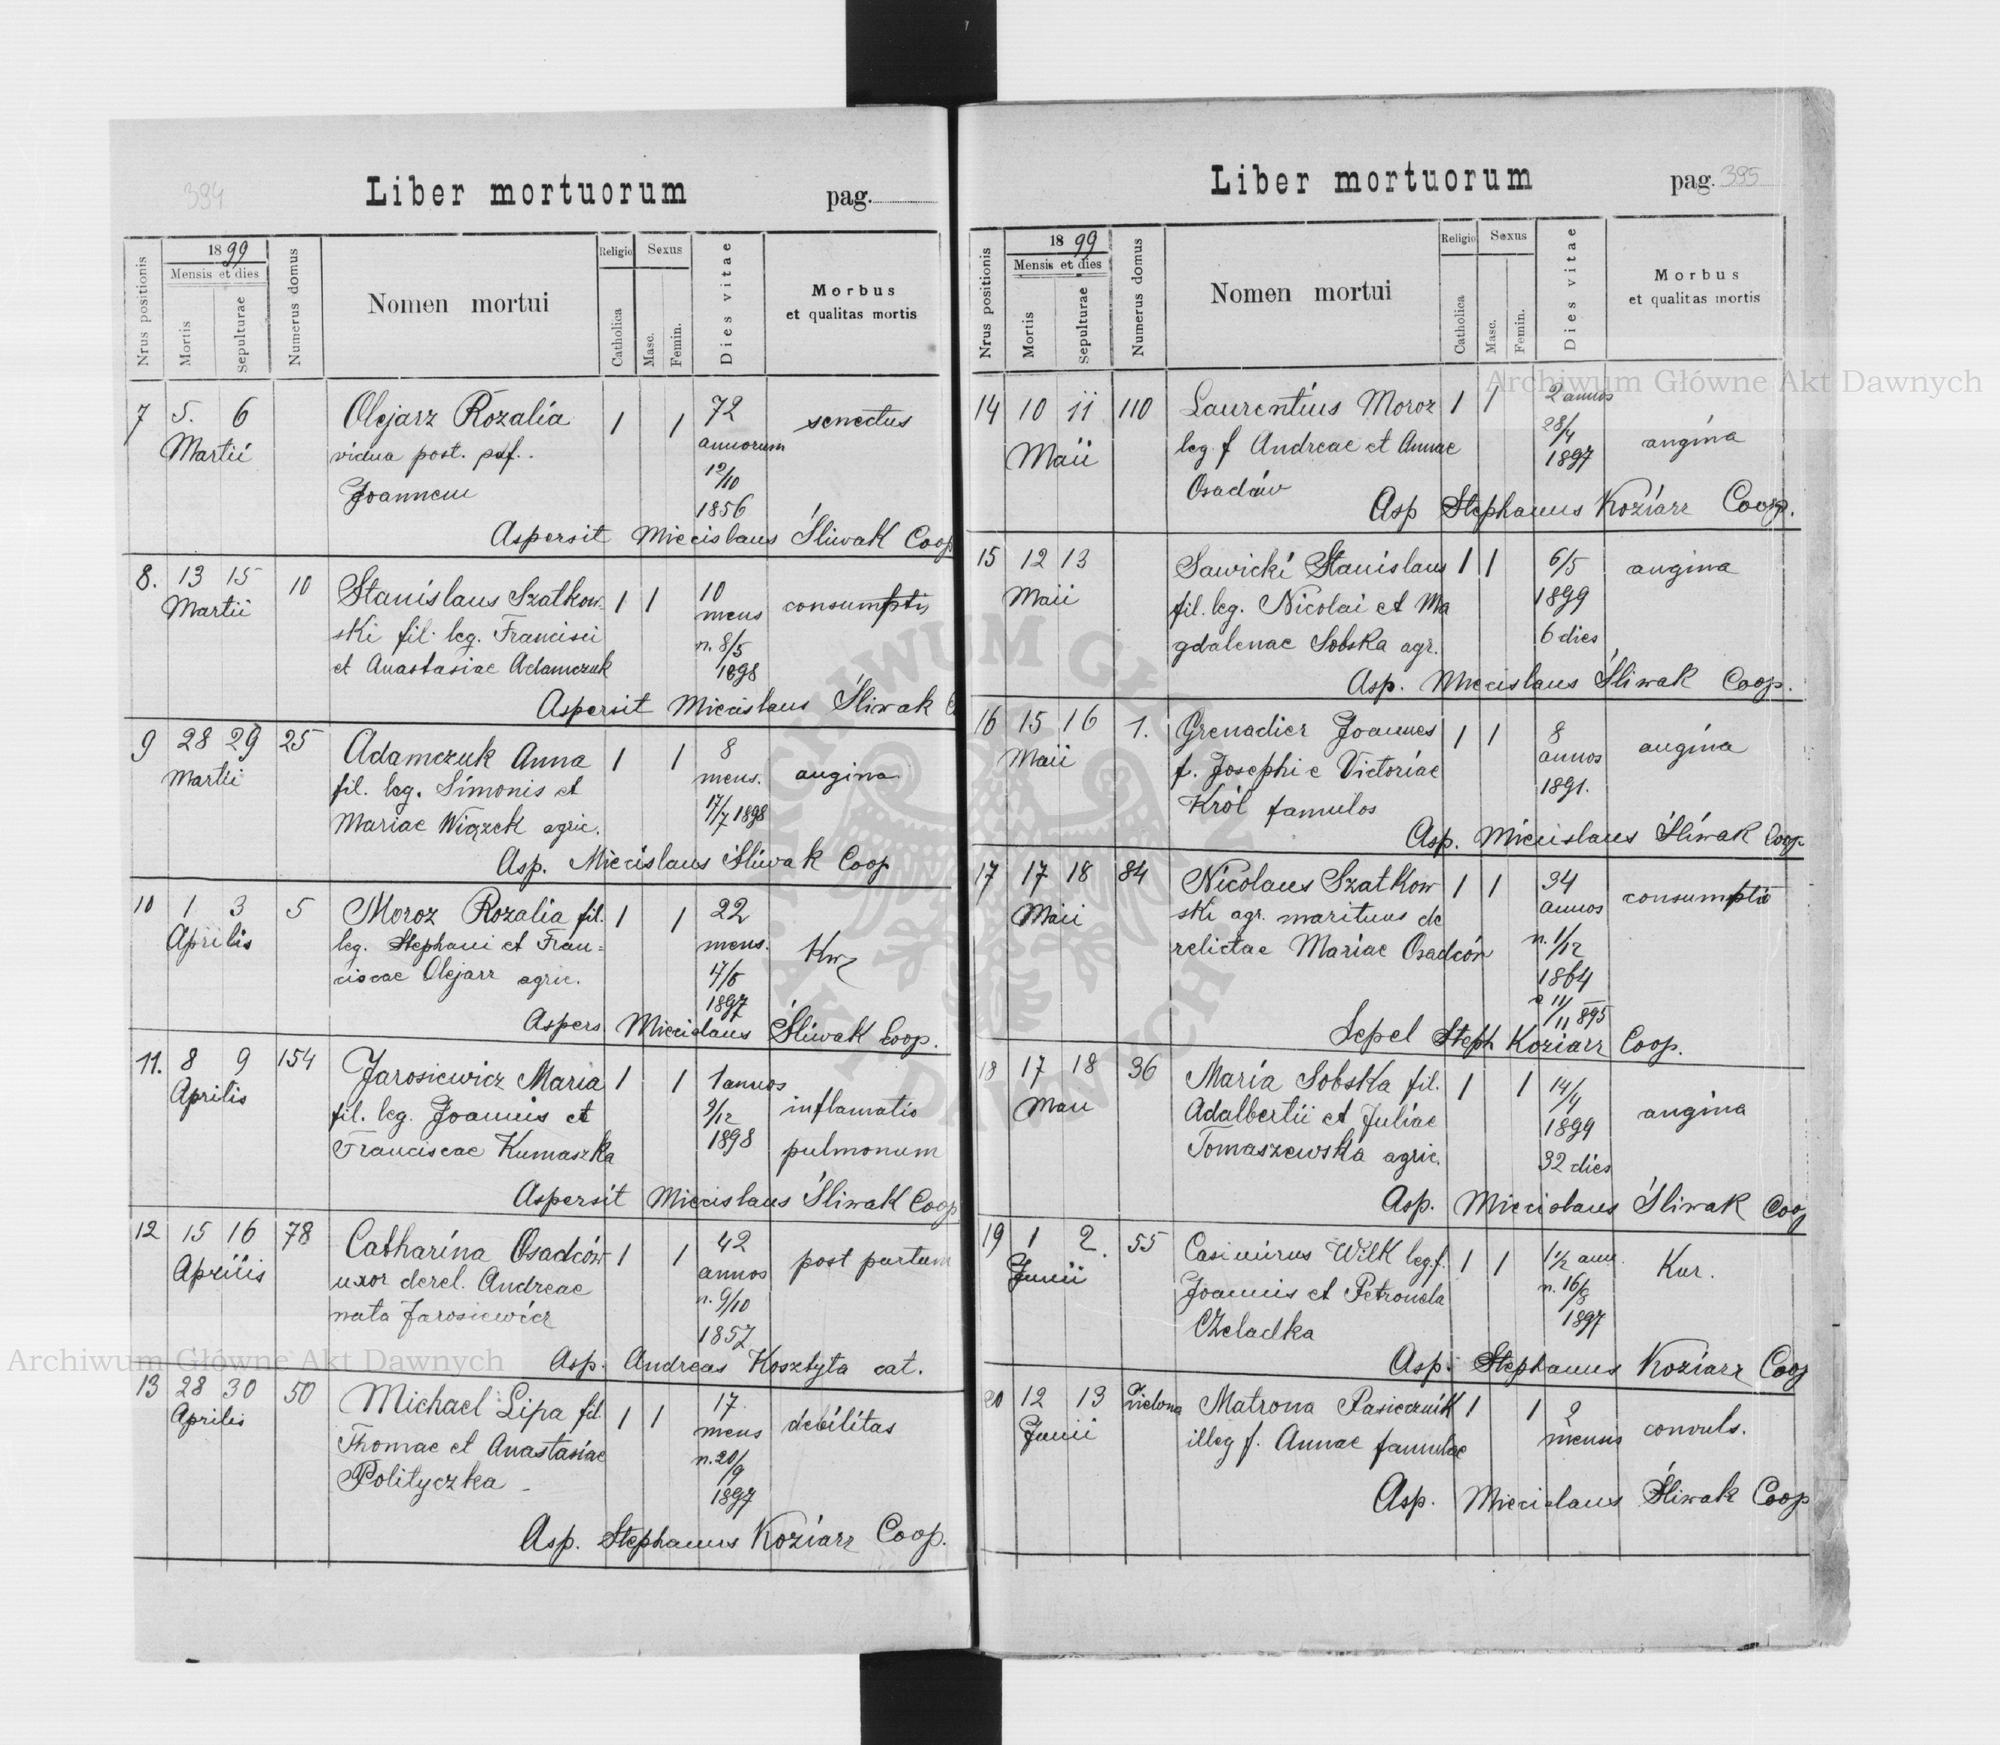 394
Liber mortuorum
pag.
Nrus positionis
1899
Mensis et dies
Mortis
Sepulturae
Numerus domus
Nomen mortui
Religio
Catholica
Sexus
Masc.
Femin.
Dies vitae
Morbus
et qualitas mortis
7 5. 6 Olejarz Rozalia 1 1 72 senectus
Martii vidua post. annorum
Joannem 12/10
1856
Aspersit Miecislaus Śliwak Coop
8. 13 15 10 Stanislaus Szatkow- 1 1 10 consumptis
Martii ski fil. leg. Francisci mens
et Anastasiae Adamczuk n. 8/5
1898
Aspersit Miecislaus Śliwak
9 28 29 25 Adamczuk Anna 1 1 8 angina
Martii fil. leg. Simonis et mens.
Mariae Wiązek agric. 17/7 1898
Asp. Miecislaus Śliwak Coop
10 1 3 5 Moroz Rozalia fil. 1 1 22
Aprilis leg. Stephani et Fran= mens.
ciscae Olejarz agric.
1897
Aspers. Miecislaus Śliwak Coop.
11. 8 9 154 Jarosiewicz Maria 1 1 1 annos inflamatio
Aprilis fil. leg. Joannis et 9/12
Franciscae Kumaszka 1898 pulmonum
Aspersit Miecislaus Śliwak Coop
12 15 16 78 Catharina Osadców 1 1 42 post partum
Aprilis uxor derel. Andreae annos
nata Jarosiewicz n. 9/10
1857
Asp. Andreas Kosztyta cat.
13 28 30 50 Michael Lipa fil 1 1 17 debilitas
Aprilis Thomae et Anastasiae mens
Polityczka n. 20/9
1897
Asp. Stephanus Koziarz Coop.
Liber mortuorum
pag. 395
Nrus positionis
1899
Mensis et dies
Mortis
Sepulturae
Numerus domus
Nomen mortui
Religio
Catholica
Sexus
Masc.
Femin.
Dies vitae
Morbus
et qualitas mortis
14 10 11 110 Laurentius Moroz 1 1 2 annos angina
Maii leg. f Andreae et Annae 28/4
Osadców 1897
Asp Stephanus Koziarz Coop.
15 12 13 Sawicki Stanislaus 1 1 6/5 angina
Maii fil. leg. Nicolai et Ma 1899
gdalenae Sobska agr. 6 dies
Asp. Miecislaus Śliwak Coop.
16 15 16 1. Grenadier Joannes 1 1 8 angina
Maii f. Josephi e Victoriae annos
Król famulos 1891.
Asp. Miecislaus Śliwak Coop.
17 17 18 84 Nicolaus Szatkow 1 1 34 consumptio
Maii ski agr. maritus de annos
relictae Mariae Osadców n. 1/12
1864
11/11 895
Sepel Steph Koziarz Coop.
18 17 18 36 Maria Sobska fil. 1 1 14/4 angina
Maii Adalbertii et Juliae 1899
Tomaszewska agric. 32 dies
Asp. Miecislaus Śliwak Coop
19 1 2. 55 Casimirus Wilk leg f. 1 1 1½ ann. Kur.
Junii Joannis et Petronela n. 16/8
Czeladka 1897
Asp. Stephanus Koziarz Coop
20 12 13 Zielona Matrona Pasiecznik 1 1 2 convuls.
Junii illeg f. Annae famulae mensis
Asp. Miecislaus Śliwak Coop
Archiwum Główne Akt Dawnych
Archiwum Główne Akt Dawnych